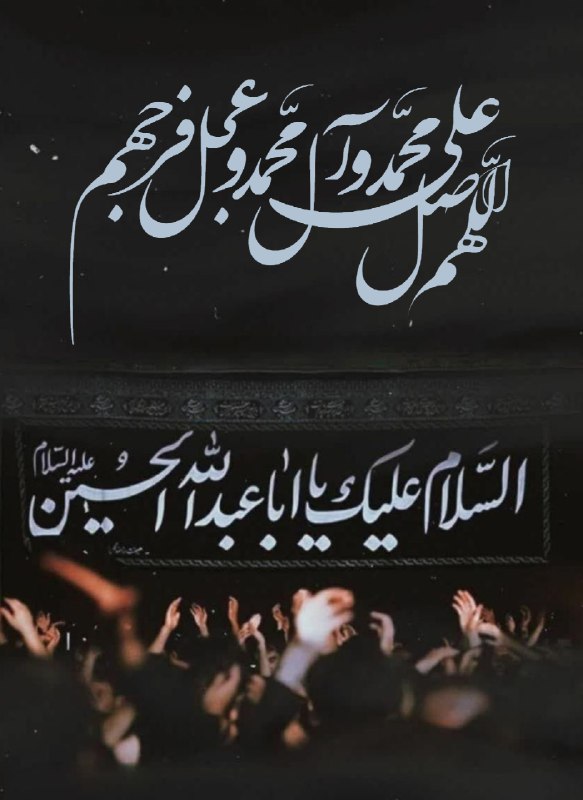 اللّهم صل علی محمّد وآل محمّد وعجل فرجهم
السّلام علیک یا اباعبدالله الحسین علیه السّلام